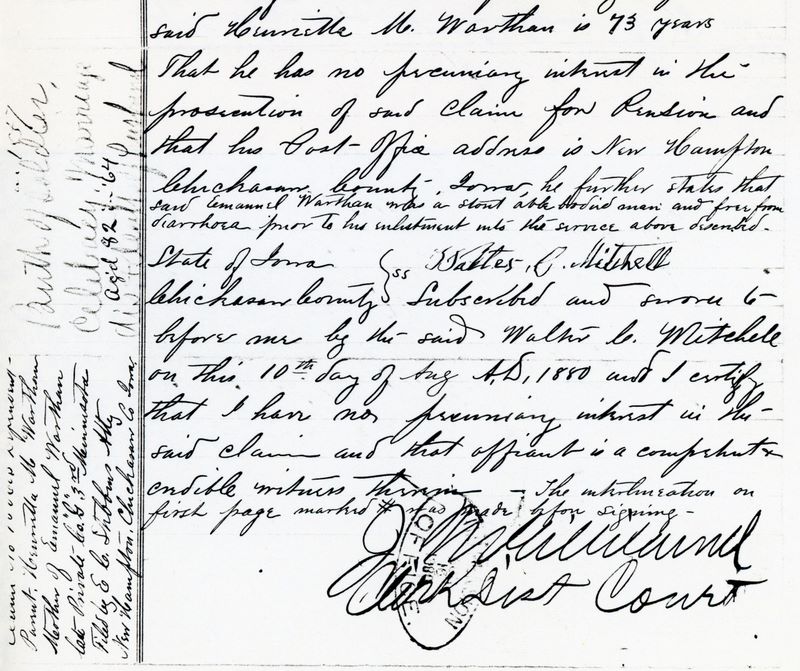 said Henrietta M. Warthan is 73 years
That he has no pecuniary interest in the
prosecution of said claim for Pension and
that his Post-Office address is New Hampton
Chickasaw County, Iowa, he further states that
said Emanuel Warthan was a stout able bodied man and free from
diarrhoea prior to his enlistment into the service above described.
State of Iowa } ss Walter C. Mitchell
Chickasaw County Subscribed and sworn to
before me by the said Walter C. Mitchell
on this 10th day of Aug A.D. 1880 and I certify
that I have no pecuniary interest in the
said claim and that affiant is a competent &
credible witness therein - The interlineation on
first page marked # was made before signing -
Clerk Dist Court
OFFICE
Parent. Henrietta M. Warthan
Mother of Emanuel Warthan
late Private Co. "G" 3rd Minnesota
Filed by E. C. Stebbins Atty
New Hampton, Chickasaw Co Iowa.
aged 82 in '64